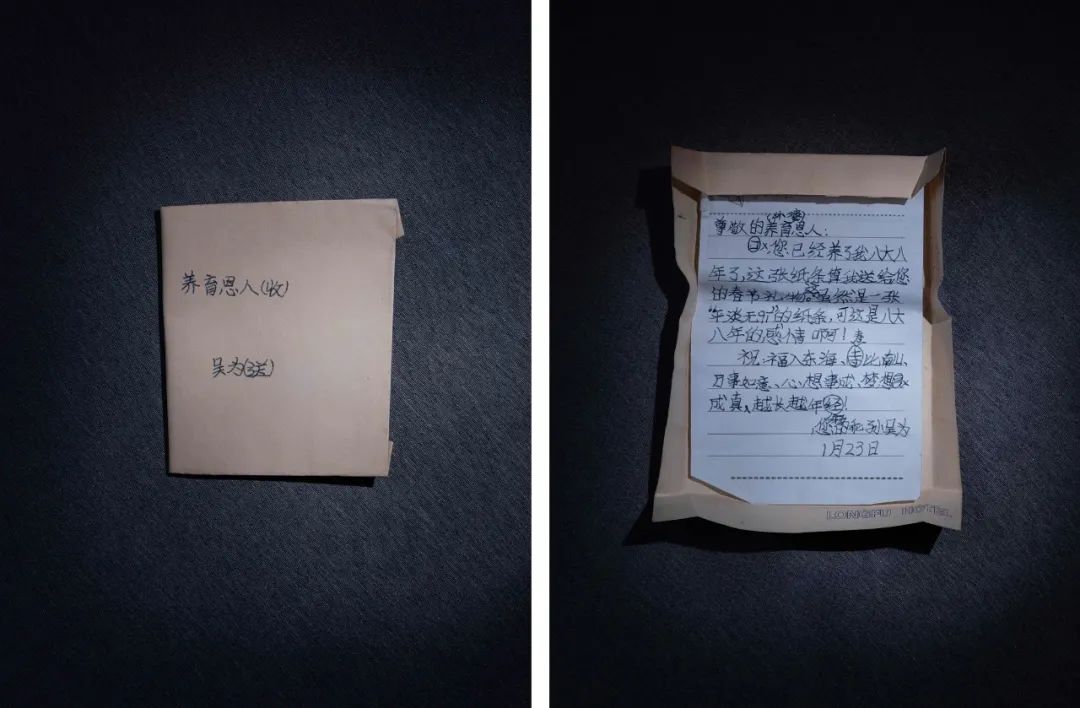 养育恩人(收)
吴为(送)
(外婆)
尊敬的养育恩人:
您已经养了我八大八
年了,这张纸条算我送给您
的春节礼物。虽然是一张
"年淡无旷"的纸条,可这是八大
八年的感情啊!
祝:福入东海、寿比南山、
万事如意、心想事成、梦想
成真,越长越年轻!
您的孙吴为
1月23日
LONGFU HOTEL